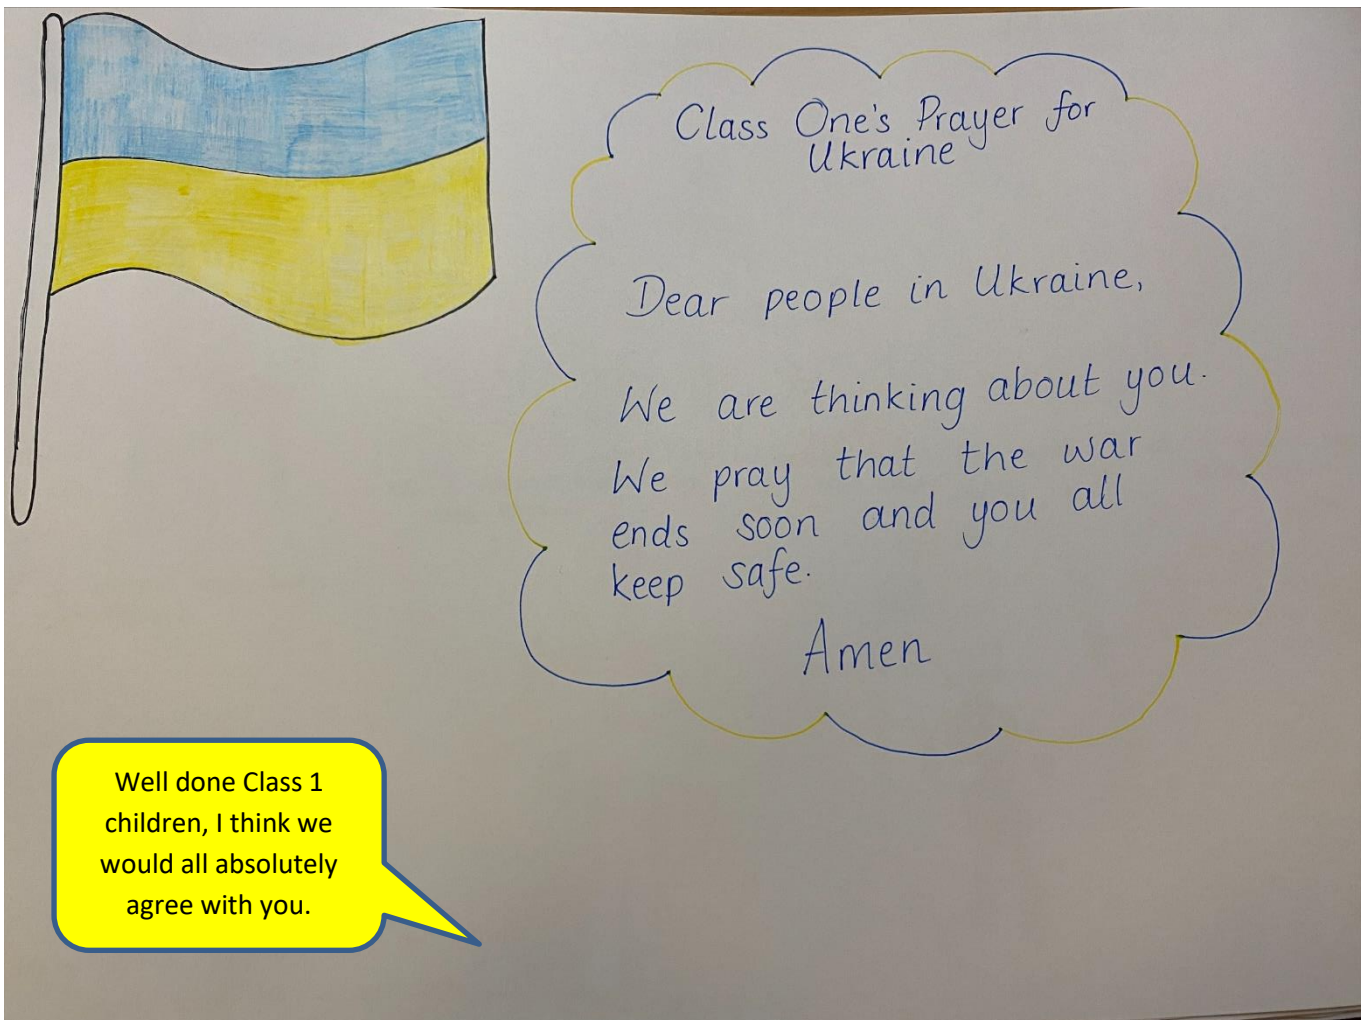 Class One's Prayer for
Ukraine
Dear people in Ukraine,
We are thinking about you.
We pray that the war
ends soon and you all
keep safe.
Amen
Well done Class 1
children, I think we
would all absolutely
agree with you.